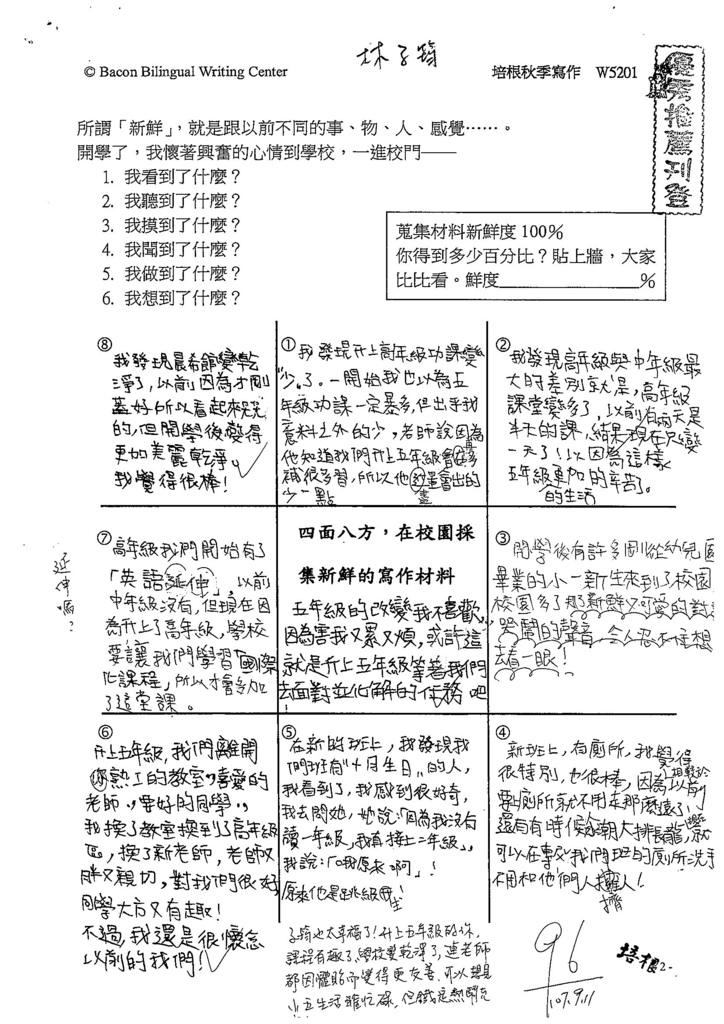 林子筠
© Bacon Bilingual Writing Center
培根秋季寫作 W5201
優秀推薦刊登
所謂「新鮮」，就是跟以前不同的事、物、人、感覺……。
開學了，我懷著興奮的心情到學校，一進校門——
1. 我看到了什麼？
2. 我聽到了什麼？
3. 我摸到了什麼？
4. 我聞到了什麼？
5. 我做到了什麼？
6. 我想到了什麼？
蒐集材料新鮮度 100%
你得到多少百分比？貼上牆，大家
比比看。鮮度%
⑧
我發現晨希館變乾
淨了，以前因為才剛
蓋好所以看起來
的，但開學後變得
更加美麗乾淨。
我覺得很棒！
①我發現升上高年級功課變
少了。一開始我也以為五
年級功課一定暴多，但出乎我
意料之外的少，老師說因為
他知道我們升上五年級會再多
補很多習，所以他盡量會出的
少一點
②
我發現高年級與中年級最
大的差別就是，高年級
課堂變多了，以前有兩天是
半天的課，結果現在只變
一天了！以因為這樣
五年級更加的辛苦了。
的生活
⑦
高年級我們開始有了
「英語延伸」，以前
中年級沒有，但現在因
為升上了高年級，學校
要讓我們學習「國際
化課程」，所以才會多加
了這堂課。
延伸嗎？
四面八方，在校園採
集新鮮的寫作材料
五年級的改變我不喜歡，
因為害我又累又煩，或許這
就是升上五年級等著我們
去面對並化解的任務吧！
③
開學後有許多剛從幼兒園
畢業的小一新生來到了校園
校園多了那新鮮又可愛的對
哭鬧的聲音，令人忍不住想
去看一眼！
⑥
升上五年級，我們離開
熟的教室，喜愛的
老師，要好的同學，
我換了教室換到了高年級
區，換了新老師，老師又
胖又親切，對我們很好，
同學大方又有趣！
不過，我還是很懷念
以前的我們！
⑤
在新的班上，我發現我
們班有"十月生日"的人，
我看到了，我感到很好奇，
我去問她，她說：「因為我沒有
讀一年級，我直接上二年級」，
我說：「哦原來啊」！
原來他是跳級生
④
新班上，有廁所，我覺得
很特別，也很棒，因為以前
相較於
要上廁所就不用在那麼遠了！
還有有時候會潮大排長龍，就
可以在專於我們班的廁所洗手
不用和他們人擠人！
子筠也太幸福了！升上五年級的你，
課程有趣了，學校變乾淨了，連老師
都因懼胎而變得更友善，可以想見
小五生活雖忙碌，但鐵定熱鬧充
96
107.9.11
培根